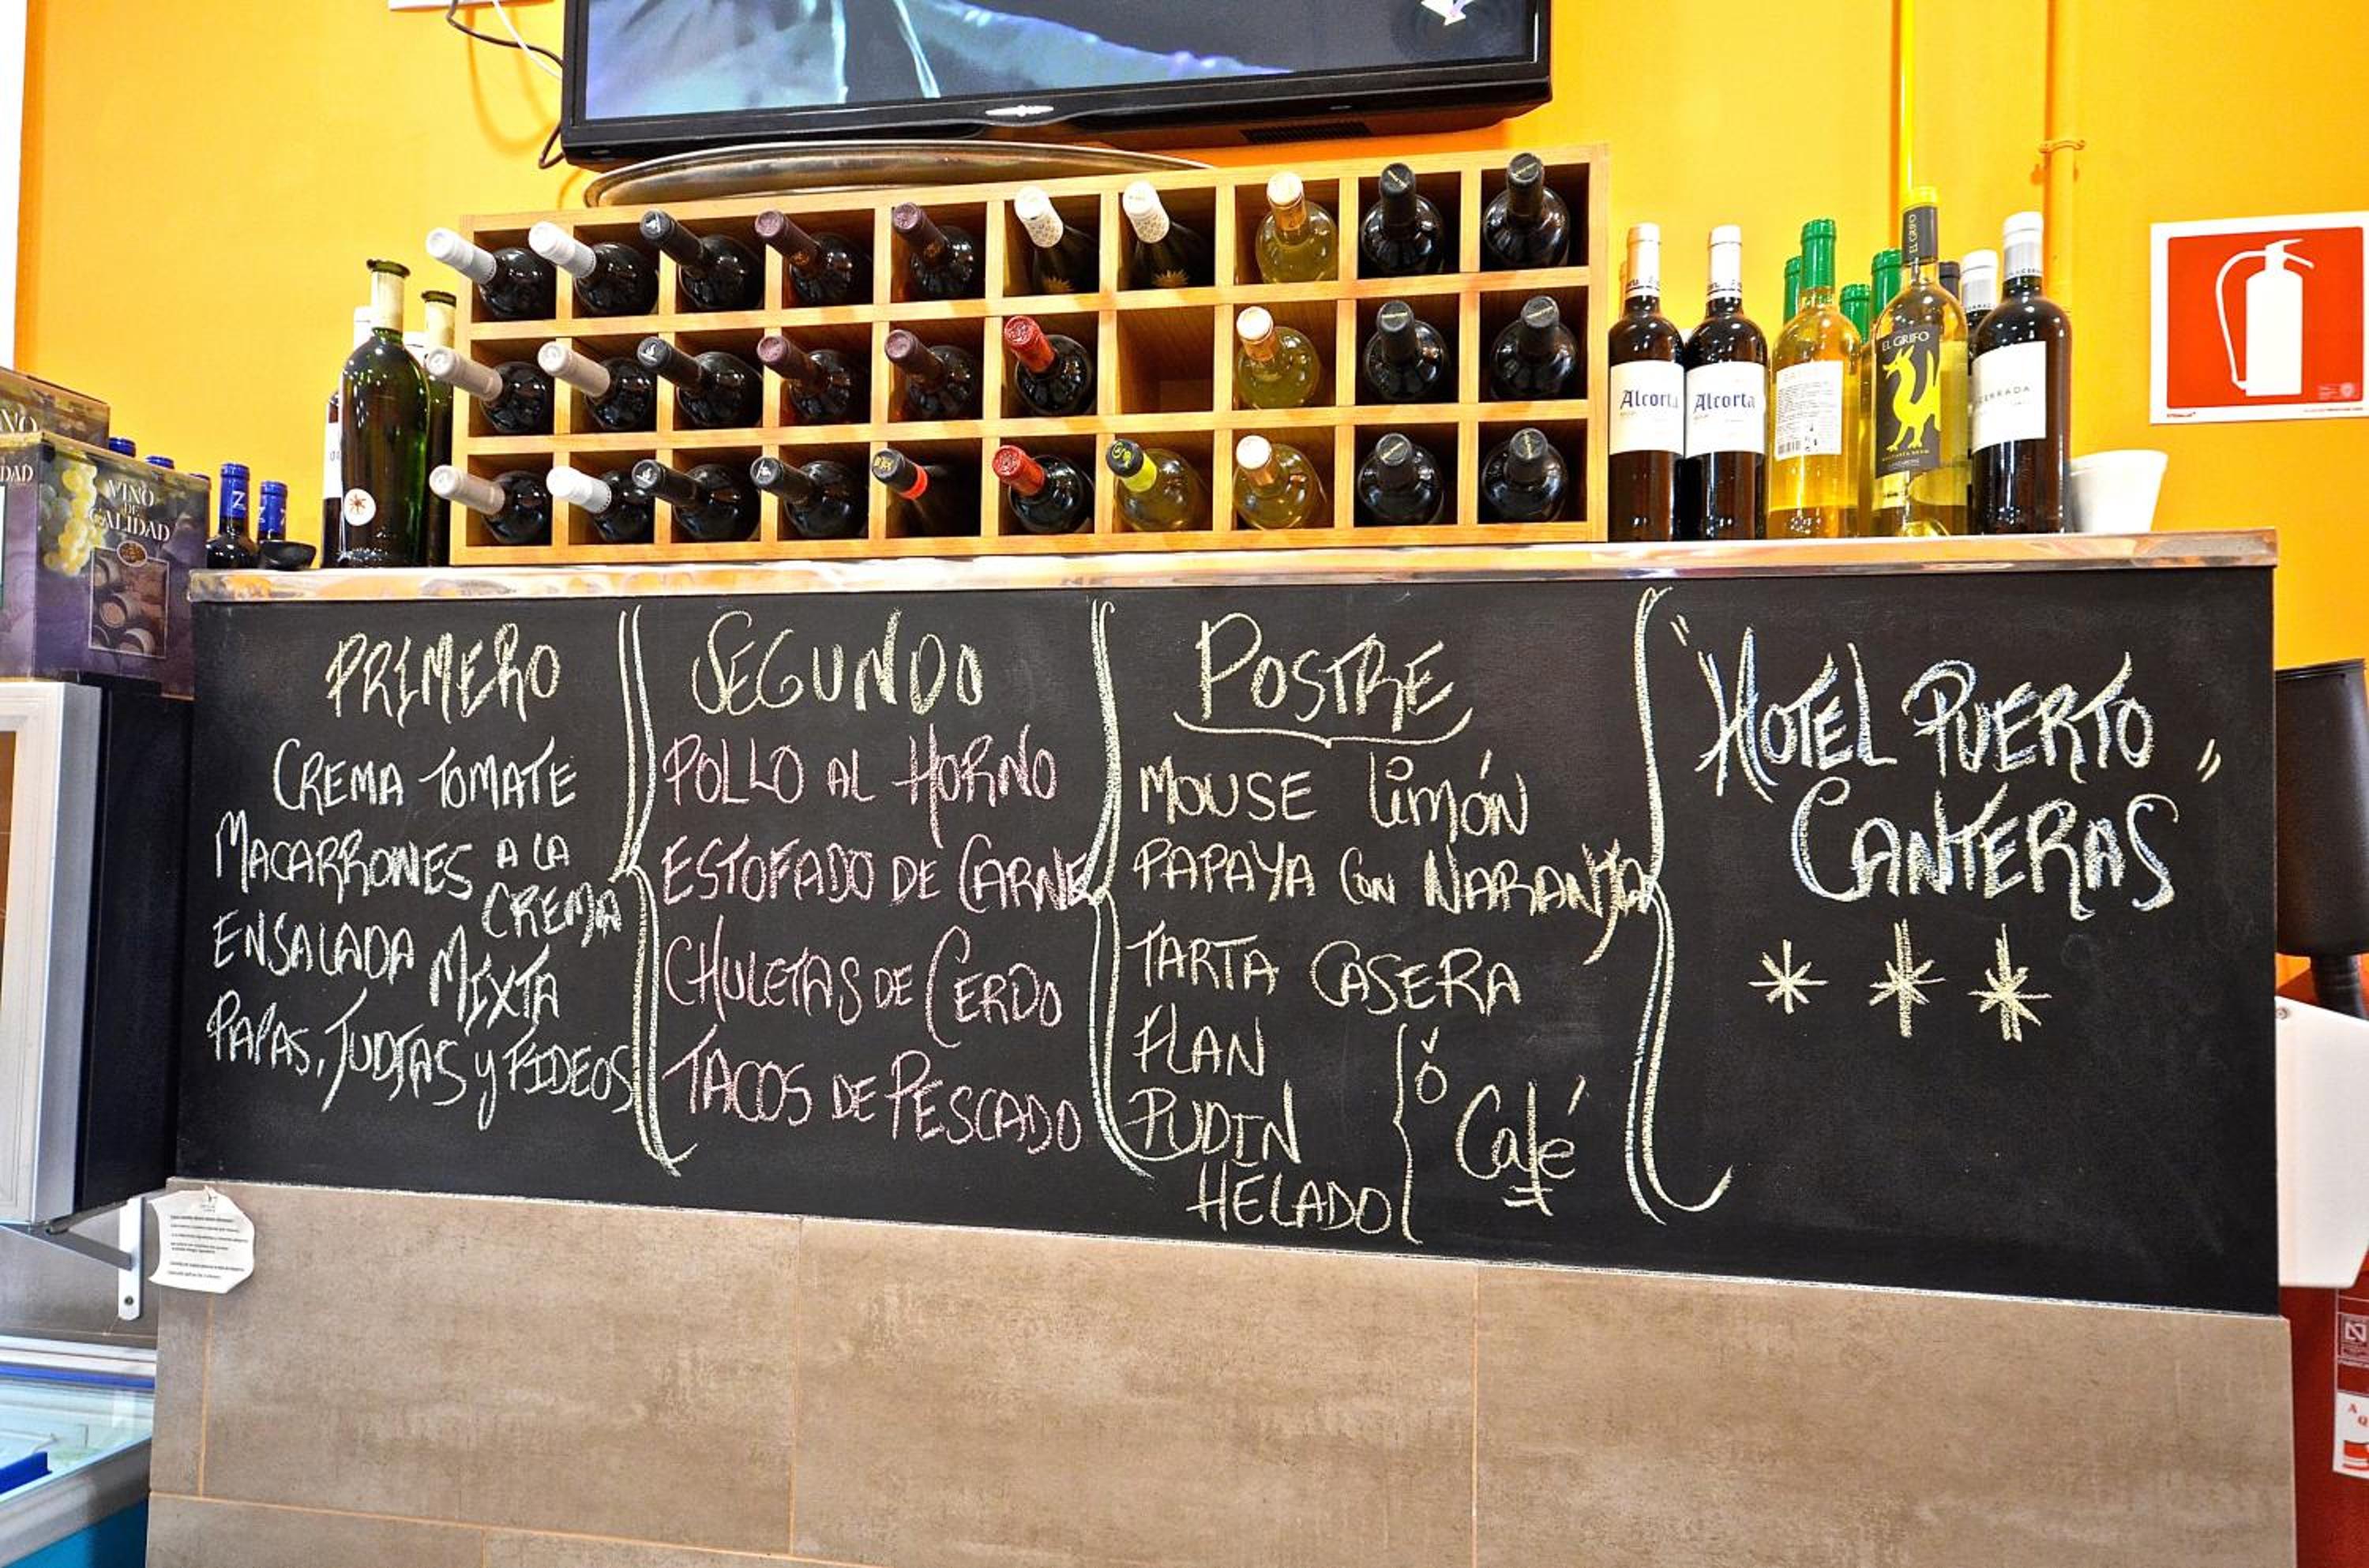 Alcorta
Alcorta
EL GRIFO
EL GRIFO
VINO
DE
CALIDAD
DAD
Z
PRIMERO
CREMA TOMATE
MACARRONES A LA
CREMA
ENSALADA MIXTA
PAPAS, JUDIAS y FIDEOS
SEGUNDO
POLLO AL HORNO
ESTOFADO DE CARNE
CHULETAS DE CERDO
TACOS DE PESCADO
POSTRE
MOUSE limón
PAPAYA CON NARANJA
TARTA CASERA
FLAN
PUDIN
HELADO
ó
Café
"HOTEL PUERTO
CANTERAS"
* * *